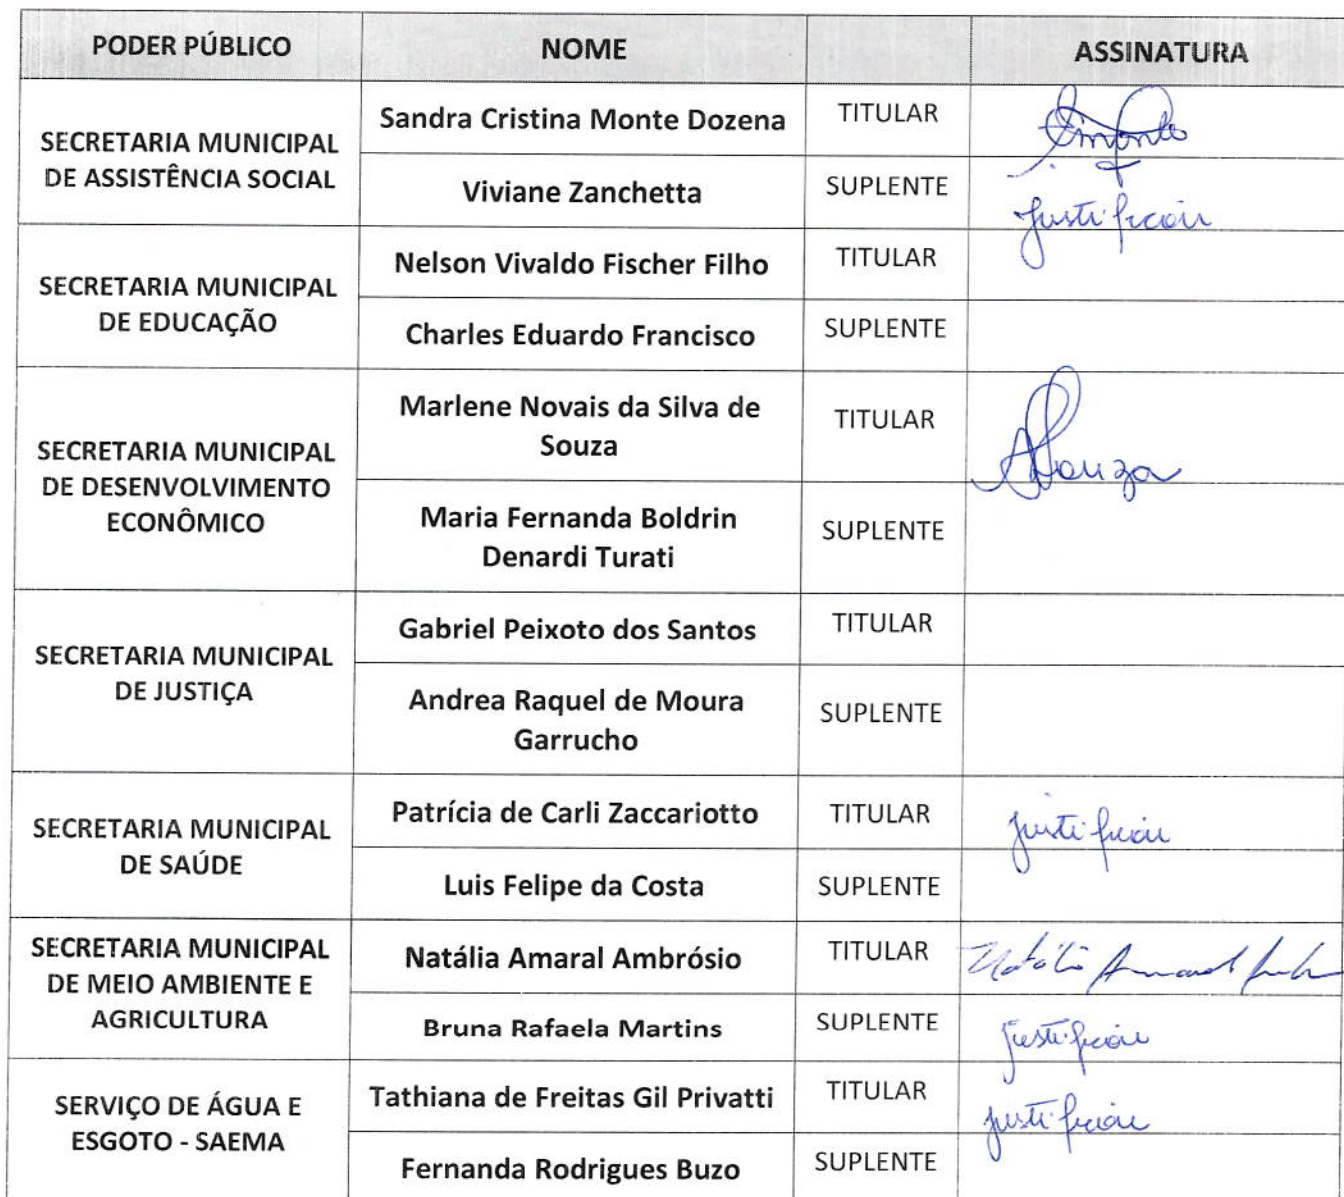 PODER PÚBLICO NOME ASSINATURA
SECRETARIA MUNICIPAL
DE ASSISTÊNCIA SOCIAL
Sandra Cristina Monte Dozena TITULAR
Viviane Zanchetta SUPLENTE justificou
SECRETARIA MUNICIPAL
DE EDUCAÇÃO
Nelson Vivaldo Fischer Filho TITULAR
Charles Eduardo Francisco SUPLENTE
SECRETARIA MUNICIPAL
DE DESENVOLVIMENTO
ECONÔMICO
Marlene Novais da Silva de
Souza
TITULAR Souza
Maria Fernanda Boldrin
Denardi Turati
SUPLENTE
SECRETARIA MUNICIPAL
DE JUSTIÇA
Gabriel Peixoto dos Santos TITULAR
Andrea Raquel de Moura
Garrucho
SUPLENTE
SECRETARIA MUNICIPAL
DE SAÚDE
Patrícia de Carli Zaccariotto TITULAR justificou
Luis Felipe da Costa SUPLENTE
SECRETARIA MUNICIPAL
DE MEIO AMBIENTE E
AGRICULTURA
Natália Amaral Ambrósio TITULAR Natália Amaral
Bruna Rafaela Martins SUPLENTE justificou
SERVIÇO DE ÁGUA E
ESGOTO - SAEMA
Tathiana de Freitas Gil Privatti TITULAR justificou
Fernanda Rodrigues Buzo SUPLENTE